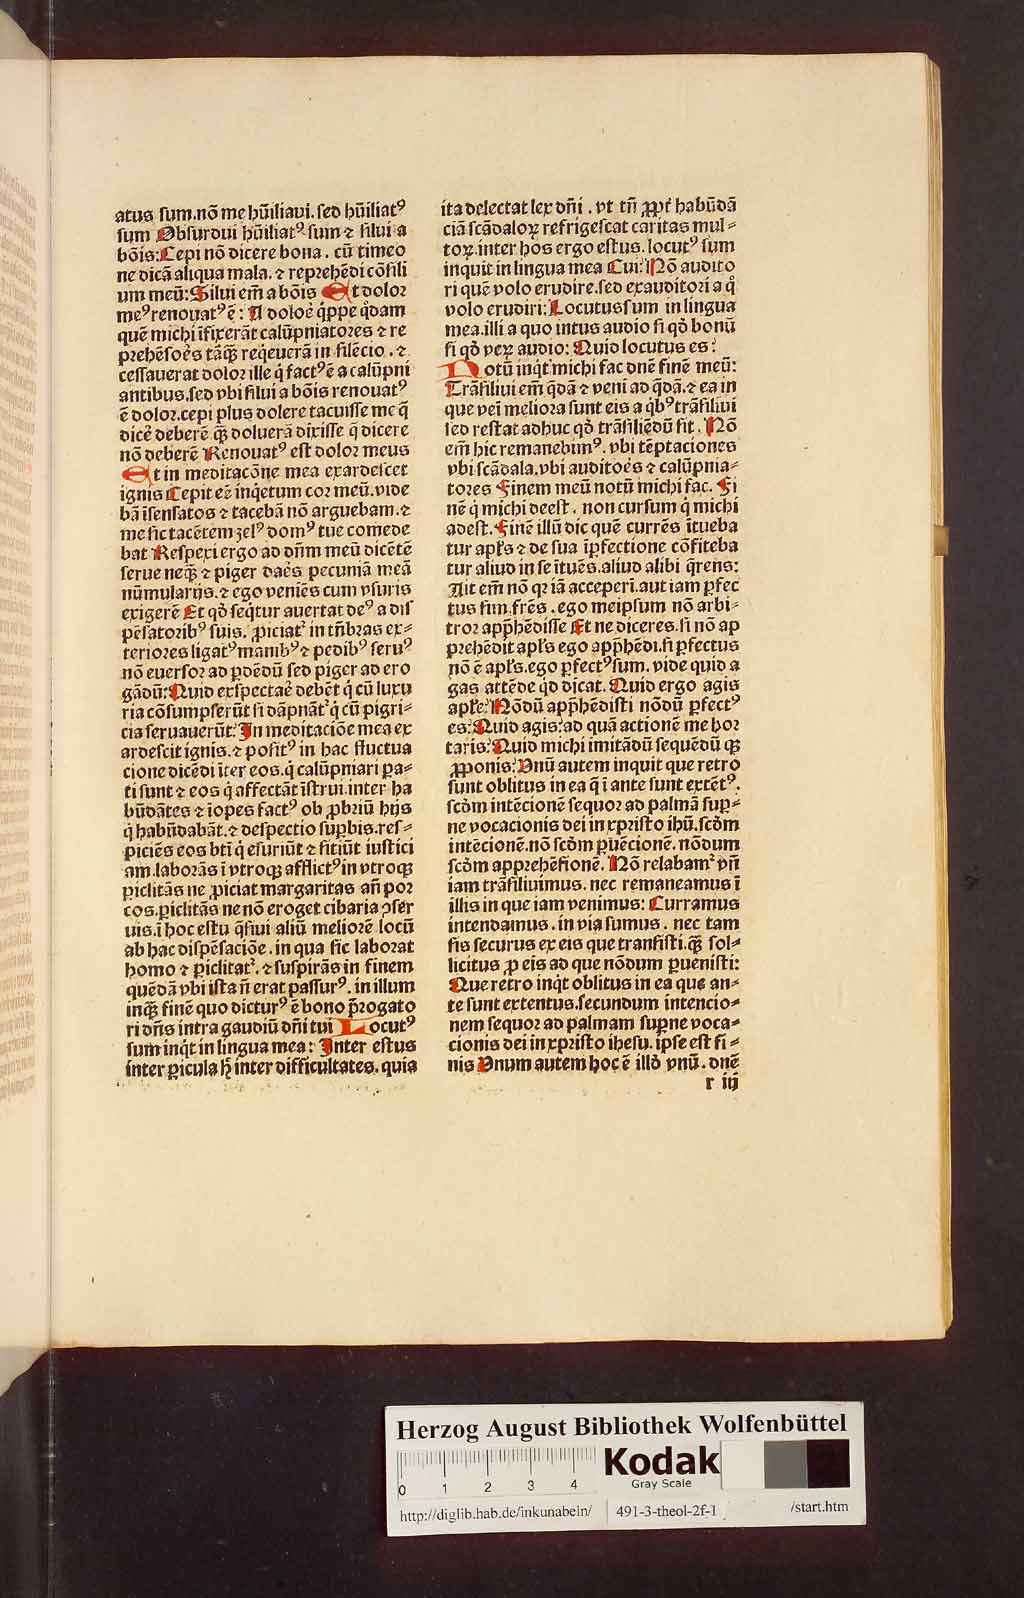 atus sum.nō me hūiliavi.sed hūiliatꝰ
sum Obsurdui hūiliatꝰ sum ⁊ silui a
bōis: Cepi nō dicere bona. cū timeo
ne dicā aliqua mala. ⁊ reprehēdi cōsili
um meū: Silui em̄ a bōis Et dolor
meꝰ renouatꝰ ē: A doloē q̇ppe q̇dam
quē michi īfixerāt calūpniatores ⁊ re
prehēsoēs tāqꝫ reqeuerā in silēcio. ⁊
cessauerat dolor ille q̇ factꝰ ē a calūpni
antibus.sed vbi silui a bōis renouatꝰ
ē dolor.cepi plus dolere tacuisse me q̄
dicē deberē qꝫ doluerā dixisse q̄ dicere
nō deberē Renouatꝰ est dolor meus
Et in meditacōne mea exardescet
ignis Cepit eē inq̇etum cor meū.vide
bā īsensatos ⁊ tacebā nō arguebam.⁊
me sic tacētem zelꝰ domꝰ tue comede
bat Respexi ergo ad dn̄m meū dicētē
serue neqꝫ ⁊ piger daēs pecuniā meā
nūmularijs.⁊ ego veniēs cum vsuris
exigerē Et qō seq̄tur auertat deꝰ a dis
pēsatoribꝰ suis. ꝓiciatꝰ in tn̄bras ex⸗
teriores ligatꝰ manibꝰ ⁊ pedibꝰ seruꝰ
nō euersor ad ꝑdēdū sed piger ad ero
gādū: Quid exspectaē debēt q̇ cū luxu
ria cōsumpserūt si dāpnātꝰ q̇ cū pigri⸗
cia seruauerūt: In meditaciōe mea ex
ardescit ignis.⁊ positꝰ in hac fluctua
cione dicēdi īter eos.q̇ calūpniari ꝑa⸗
ti sunt ⁊ eos q̇ affectāt īstrui.inter ha
būdātes ⁊ īopes factꝰ ob ꝓbriū hijs
q̇ habūdabāt.⁊ despectio suꝑbis.res⸗
piciēs eos bt̄i q̇ esuriūt ⁊ sitiūt iustici
am.laborās ī vtroqꝫ afflictꝰ in vtroqꝫ
ꝑiclitās ne ꝓiciat margaritas an̄ por
cos.ꝑiclitās ne nō eroget cibaria ɔser
uis.ī hoc estu q̄siui aliū meliorē locū
ab hac dispēsaciōe. in qua sic laborat
homo ⁊ ꝑiclitatꝰ. ⁊ suspirās in finem
quēdā vbi ista n̄ erat passurꝰ. in illum
inqꝫ finē quo dicturꝰ ē bono ꝓrogato
ri dn̄s intra gaudiū dn̄i tui Locutꝰ
sum inq̇t in lingua mea: Inter estus
inter ꝑicula hꝰ inter difficultates. quia
ita delectat lex dn̄i. vt tn̄ ꝓpt̄ habūdā
ciā scādaloꝝ refrigescat caritas mul⸗
toꝝ.inter hos ergo estus. locutꝰ sum
inquit in lingua mea Cui: Nō audito
ri quē volo erudire.sed exauditori a q̊
volo erudiri: Locutus sum in lingua
mea.illi a quo intus audio si qō bonū
si qō veꝝ audio: Quid locutus es:
Notū inq̇t michi fac dn̄e finē meū:
Trāsiliui em̄ q̄dā ⁊ veni ad q̄dā.⁊ ea in
que vei meliora sunt eis a q̇bꝰ trāsiliui
sed restat adhuc qō trāsiliēdū sit. Nō
em̄ hic remanebimꝰ. vbi tēptaciones
vbi scādala.vbi auditoēs ⁊ calūpnia⸗
tores Finem meū notū michi fac. Fi
nē q̇ michi deest. non cursum q̇ michi
adest. Finē illū dic quē currēs ītueba
tur apl̄s ⁊ de sua īꝑfectione cōfiteba
tur aliud in se ītuēs.aliud alibi q̄rens:
Ait em̄ nō qꝛ iā acceperi.aut iam ꝑfec
tus sim.fr̄es. ego meipsum nō arbi⸗
tror app̄hēdisse Et ne diceres.si nō ap
prehēdit apl̄s ego app̄hēdi.si ꝑfectus
nō ē apl̄s.ego ꝑfectꝰ sum. vide quid a
gas attēde qd dicat. Quid ergo agis
apl̄e: Nōdū app̄hēdisti nōdū ꝑfectꝰ
es: Quid agis: ad quā actionē me hor
taris: Quid michi imitādū sequēdū qꝫ
ꝓponis: Vnū autem inquit que retro
sunt oblitus in ea q̄ ī ante sunt extētꝰ.
scd̄m intēcionē sequor ad palmā suꝑ⸗
ne vocacionis dei in xpristo ihū.scd̄m
intēcionē.nō scd̄m ꝑuēcionē. nōdum
scd̄m apprehēsionē. Nō relabamꝰ vn̄
iam trāsiliuimus. nec remaneamus ī
illis in que iam venimus: Curramus
intendamus. in via sumus. nec tam
sis securus ex eis que transisti.qꝫ sol⸗
licitus ꝓ eis ad que nōdum ꝑuenisti:
Que retro inq̇t oblitus in ea que an⸗
te sunt extentus.secundum intencio⸗
nem sequor ad palmam suꝑne voca⸗
cionis dei in xpristo ihesu. ipse est fi⸗
nis Vnum autem hoc ē illd̄ vnū. dn̄e
r iij
Herzog August Bibliothek Wolfenbüttel
0 1 2 3 4
Kodak
Gray Scale
http://diglib.hab.de/inkunabeln/ 491-3-theol-2f-1 /start.htm